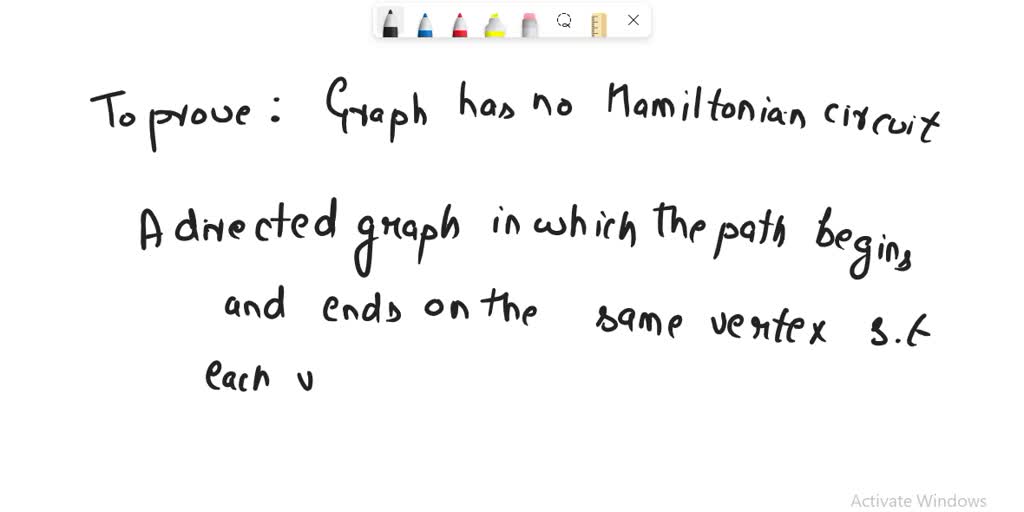 To prove: Graph has no Hamiltonian circuit
A directed graph in which the path begins
and ends on the same vertex s.t
each v
Activate Windows